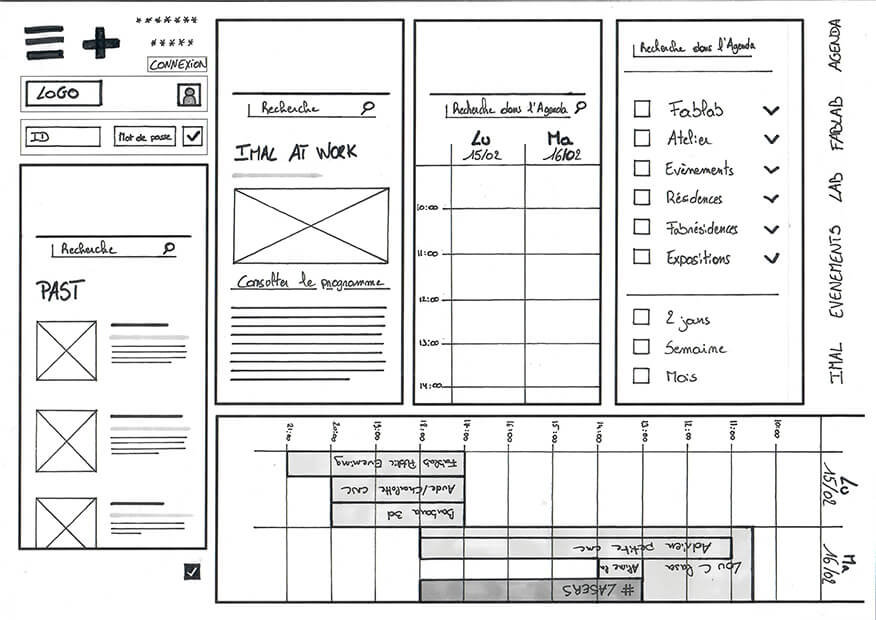 *******
*****
CONNEXION
LOGO
ID
Mot de passe
Recherche
PAST
Recherche
IMAL AT WORK
Consulter le programme
Recherche dans l'Agenda
Lu
15/02
Ma
16/02
10:00
11:00
12:00
13:00
14:00
Recherche dans l'Agenda
Fablab
Atelier
Evènements
Résidences
Fabrésidences
Expositions
2 jours
Semaine
Mois
IMAL EVENEMENTS LAB FABLAB AGENDA
Lu
15/02
Ma
16/02
10:00
11:00
12:00
13:00
14:00
15:00
16:00
17:00
18:00
19:00
20:00
21:00
Fablab Public Evening
Aude/Charlotte
Barbara 3d
Adrien petite cnc
Lou C Casa
# LASERS